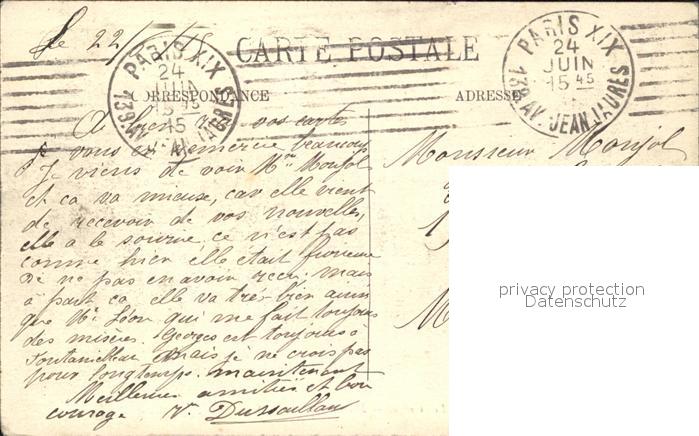 Le 22/
CARTE POSTALE
PARIS XIX
24
JUIN
15 45
139 AV. JEAN JAURES
PARIS XIX
24
JUIN
15 45
139 AV. JEAN JAURES
CORRESPONDANCE
ADRESSE
A bien reçu vos cartes
je vous en remercie beaucoup
Je viens de voir Mme Monjol
et ça va mieux, car elle vient
de recevoir de vos nouvelles,
elle a le sourire, ce n'est pas
comme hier elle était furieuse
de ne pas en avoir reçu. mais
à part ça elle va très bien ainsi
que Mr Léon qui me fait toujours
des misères. Georges est toujours à
mais je ne crois pas
pour longtemps maintenant
Meilleures amitiés et bon
courage V.
Monsieur Monjol
privacy protection
Datenschutz